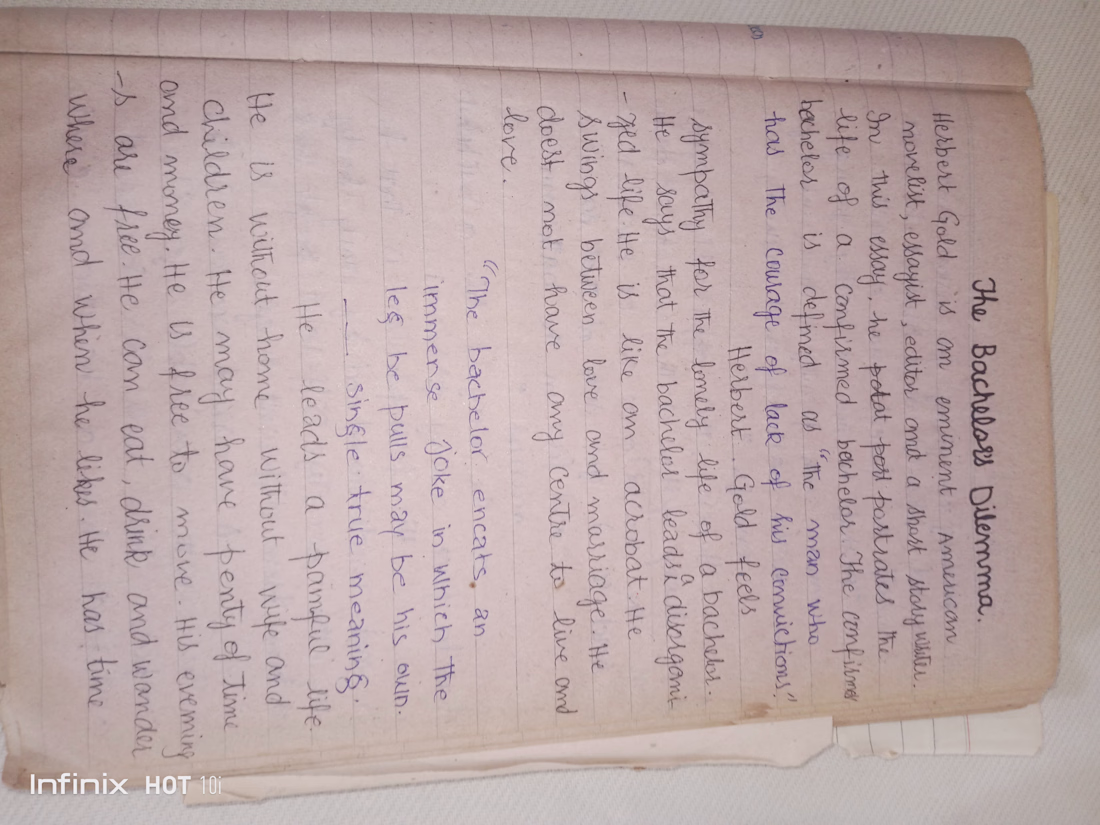 The Bachelors Dilemma.
Herbert Gold is an eminent American
novelist, essayist, editor and a short story writer.
In this essay, he potat post postrates the
life of a confirmed bachelor. The confirmed
bachelor is defined as "The man who
has the courage of lack of his convictions".
Herbert Gold feels
sympathy for the lonely life of a bachelor.
He says that the bachelor leads a disergani
-zed life. He is like an acrobat. He
swings between love and marriage. He
doest not have any centre to live and
love.
"The bachelor encats an
immense joke in which the
leg be pulls may be his own.
___ single true meaning.
He leads a painful life.
He is without home without wife and
children. He may have penty of time
and money. He is free to move. His evening
-s are free. He can eat, drink and wander
where and when he likes. He has time
Infinix HOT 10i